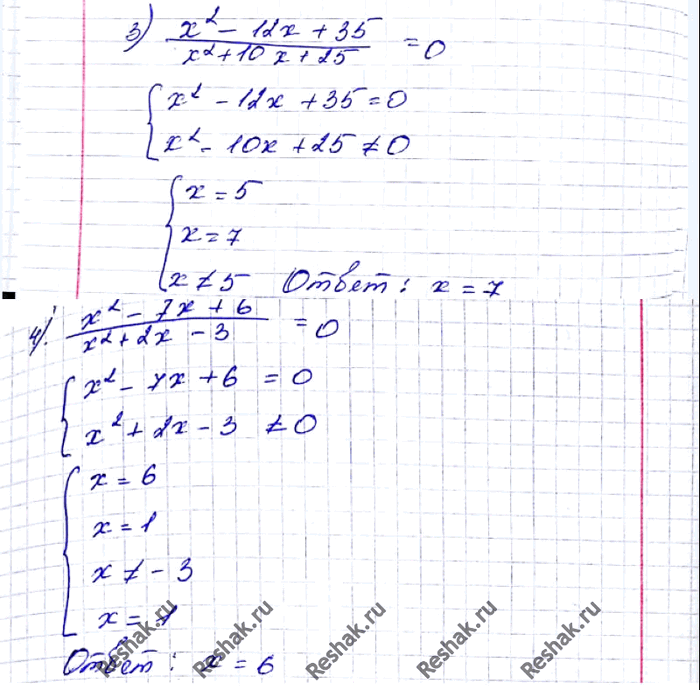 3) x² - 12x + 35 / x² + 10x + 25 = 0
x² - 12x + 35 = 0
x² - 10x + 25 ≠ 0
x = 5
x = 7
x ≠ 5 Ответ: x = 7
4) x² - 7x + 6 / x² + 2x - 3 = 0
x² - 7x + 6 = 0
x² + 2x - 3 ≠ 0
x = 6
x = 1
x ≠ -3
x = 1
Ответ: x = 6
Reshak.ru Reshak.ru Reshak.ru Reshak.ru Reshak.ru